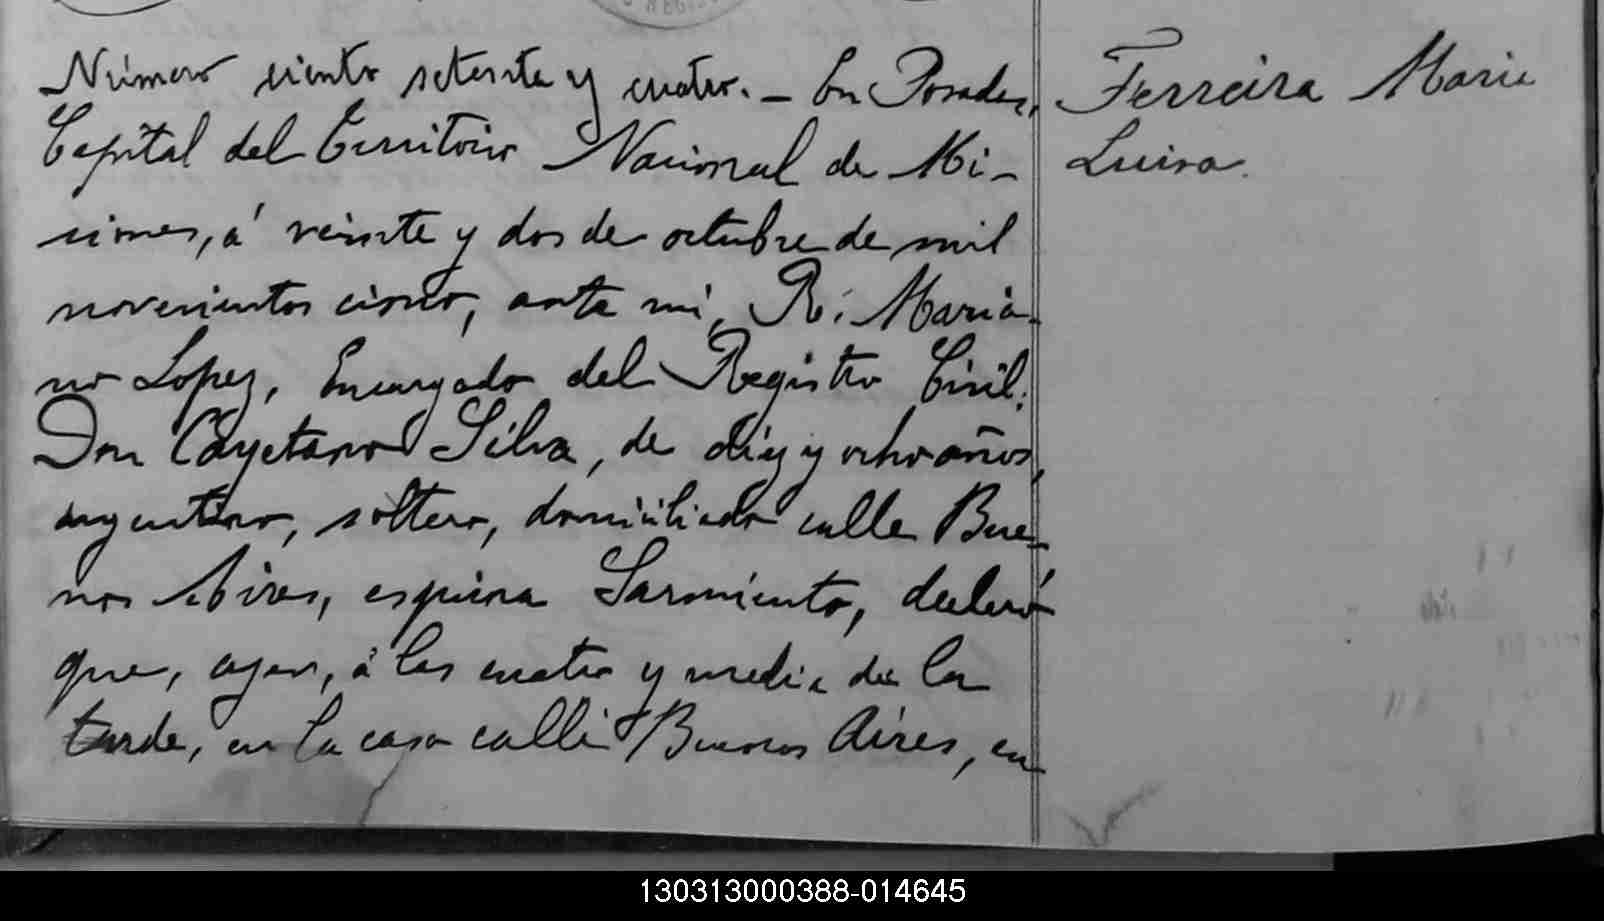 Número ciento setenta y cuatro. – En Posadas,
Capital del Territorio Nacional de Mi-
siones, á veinte y dos de octubre de mil
novecientos cinco, ante mi, R. Maria-
no Lopez, Encargado del Registro Civil:
Don Cayetano Silva, de diez y ocho años,
argentino, soltero, domiciliado calle Bue-
nos Aires, esquina Sarmiento, declaró
que, ayer, á las cuatro y media de la
tarde, en la casa calle Buenos Aires, en
Ferreira Maria
Luisa.
130313000388-014645